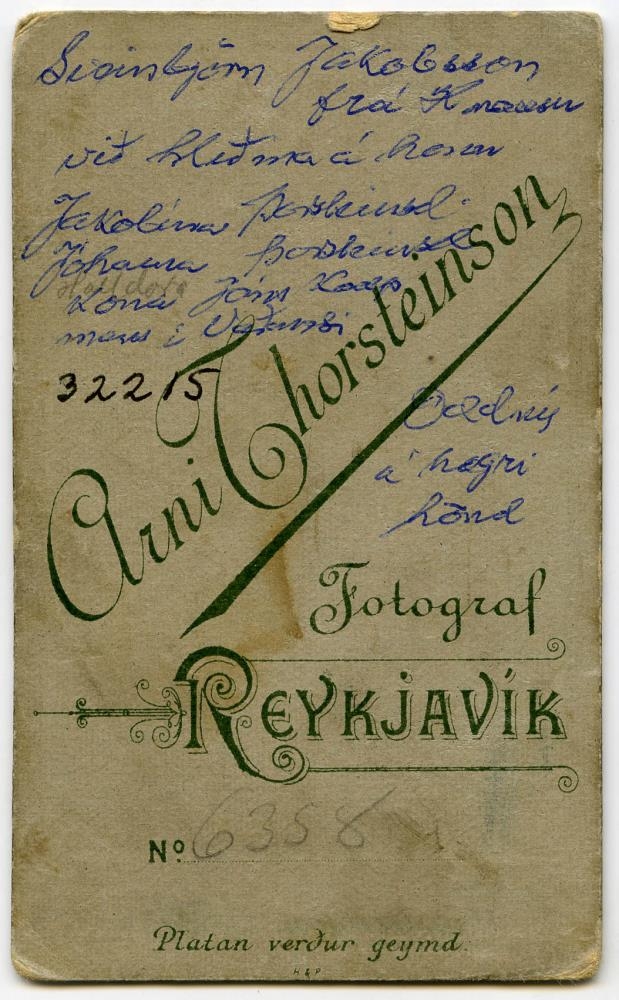 Sveinbjörn Jakobsson
frá Hnausu
við hliðina á honum
Jakobína Þorsteinsd.
Jóhanna Þorsteinsd
Halldóra
Kona Jóns Kaup
manns í
32215
Oddný
á hægri
hönd
Arni Thorsteinson
Fotograf
REYKJAVÍK
Nº 6358
Platan verður geymd.
H & P